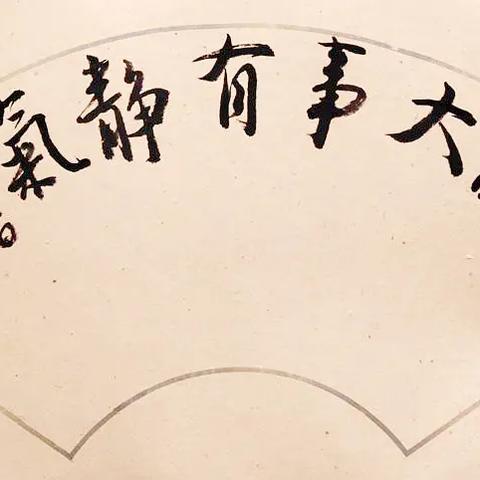 大事有静氣